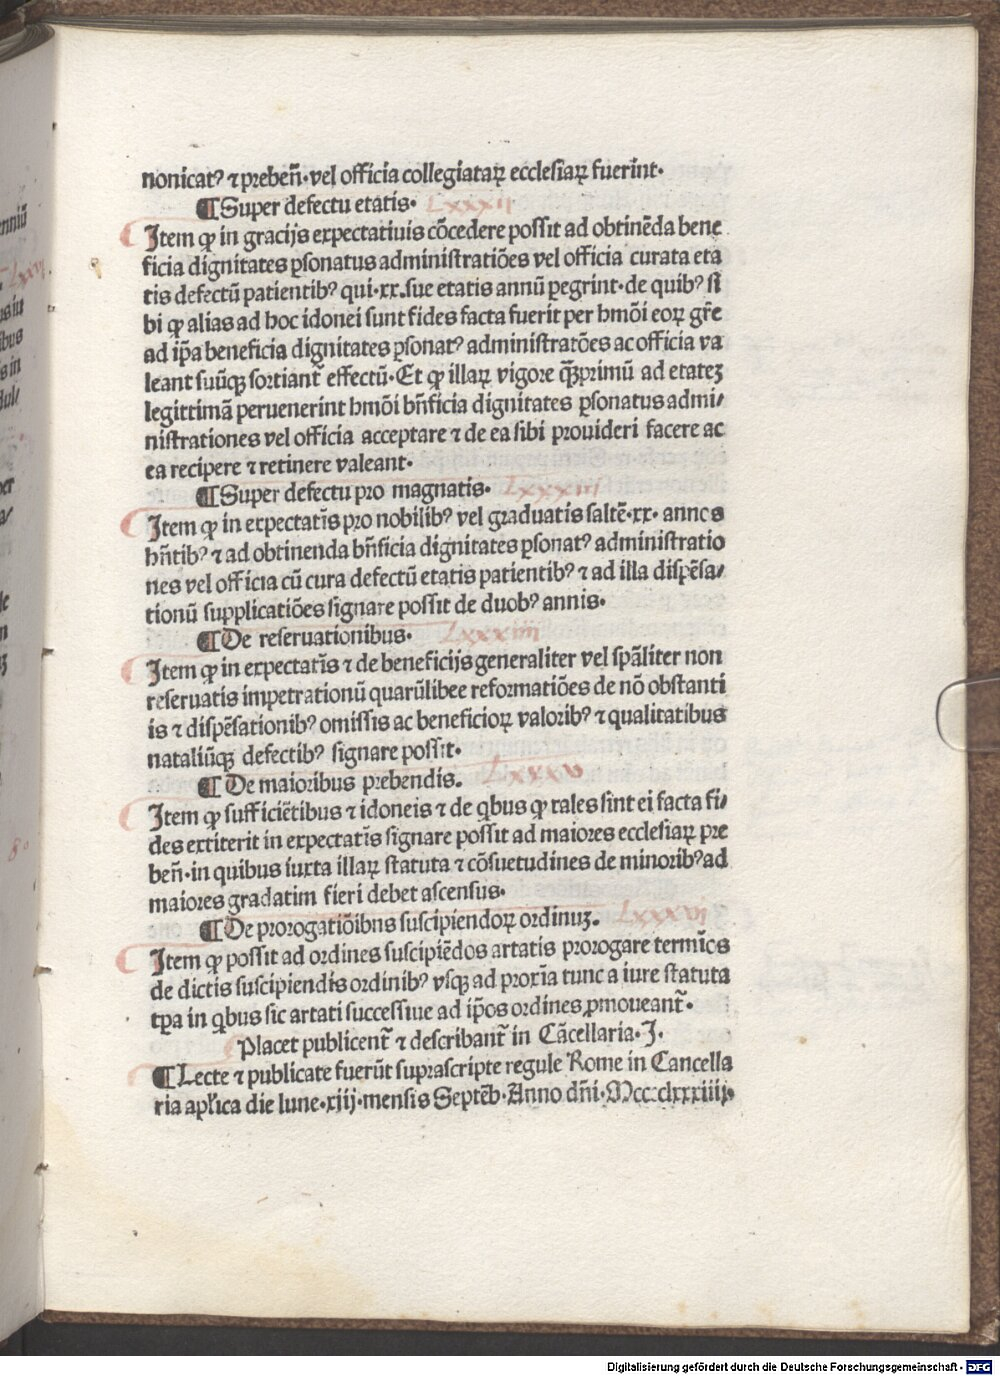 nonicatꝰ ⁊ prebeñ·vel officia collegiataꝝ ecclesiaꝝ fuerint·
¶Super defectu etatis· lxxxii
Item ꝙ in gracijs expectatiuis cõcedere possit ad obtinẽda bene
ficia dignitates ꝑsonatus administratiões vel officia curata eta
tis defectũ patientibꝰ qui·xx.sue etatis annũ ꝑegrint·de quibꝰ si
bi ꝙ alias ad hoc idonei sunt fides facta fuerit per hmõi eoꝝ gr̃e
ad ip̃a beneficia dignitates ꝑsonatꝰ administratões ac officia va
leant suũqꝫ sortiant̃ effectũ·Et ꝙ illaꝝ vigore qꝫprimũ ad etateꝫ
legittimã peruenerint hmõi bñficia dignitates ꝑsonatus admi/
nistrationes vel officia acceptare ⁊ de ea sibi prouideri facere ac
ea recipere ⁊ retinere valeant·
¶Super defectu pro magnatis· lxxxiii
Item ꝙ in expectatĩs pro nobilibꝰ vel graduatis saltẽ·xx· annos
hñtibꝰ ⁊ ad obtinenda bñficia dignitates ꝑsonatꝰ administratio
nes vel officia cũ cura defectũ etatis patientibꝰ ⁊ ad illa dispẽsa/
tionũ supplicatiões signare possit de duobꝰ annis·
¶De reseruationibus· lxxxiiii
Item ꝙ in expectatĩs ⁊ de beneficijs generaliter vel spãliter non
reseruatis impetrationũ quarũlibee reformatiões de nõ obstanti
is ⁊ dispẽsationibꝰ omissis ac beneficioꝝ valoribꝰ ⁊ qualitatibus
nataliũqꝫ defectibꝰ signare possit·
¶De maioribus prebendis. lxxxv
Item ꝙ sufficiẽtibus ⁊ idoneis ⁊ de qbus ꝙ tales sint ei facta fi/
des extiterit in expectatĩs signare possit ad maiores ecclesiaꝝ pre
beñ·in quibus iuxta illaꝝ statuta ⁊ cõsuetudines de minoribꝰad
maiores gradatim fieri debet ascensus·
¶De prorogatiõibns suscipiendoꝝ ordinuꝫ. lxxxvi
Item ꝙ possit ad ordines suscipiẽdos artatis prorogare termĩos
de dictis suscipiendis ordinibꝰ vsqꝫ ad proxĩa tunc a iure statuta
tꝑa in qbus sic artati successiue ad ip̃os ordines ꝓmoueant̃·
Placet publicent̃ ⁊ describant̃ in Cãcellaria·J·
¶Lecte ⁊ publicate fuerũt suprascripte regule Rome in Cancella
ria apl̃ica die lune·xiij·mensis Septẽb·Anno dñi·Mcccclxxxiiij·
Digitalisierung gefördert durch die Deutsche Forschungsgemeinschaft · DFG